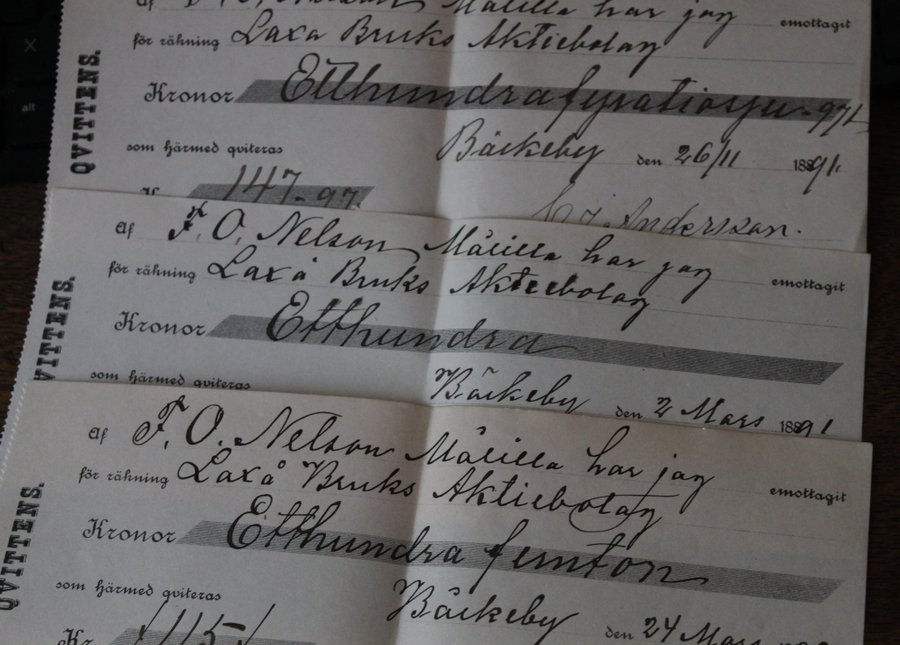 QVITTENS.
Målilla har jag emottagit
för räkning Laxå Bruks Aktiebolag
Kronor Etthundrafyratiosju-97/
som härmed qviteras Bäckeby den 26/11 1891.
147-97.
Andersson.
QVITTENS.
Af F. O. Nelson Målilla har jag emottagit
för räkning Laxå Bruks Aktiebolag
Kronor Etthundra
som härmed qviteras Bäckeby den 2 Mars 1891
QVITTENS.
Af F. O. Nelson Målilla har jag emottagit
för räkning Laxå Bruks Aktiebolag
Kronor Etthundra femton
som härmed qviteras Bäckeby den 24 Mars
Kr. /115/
alt